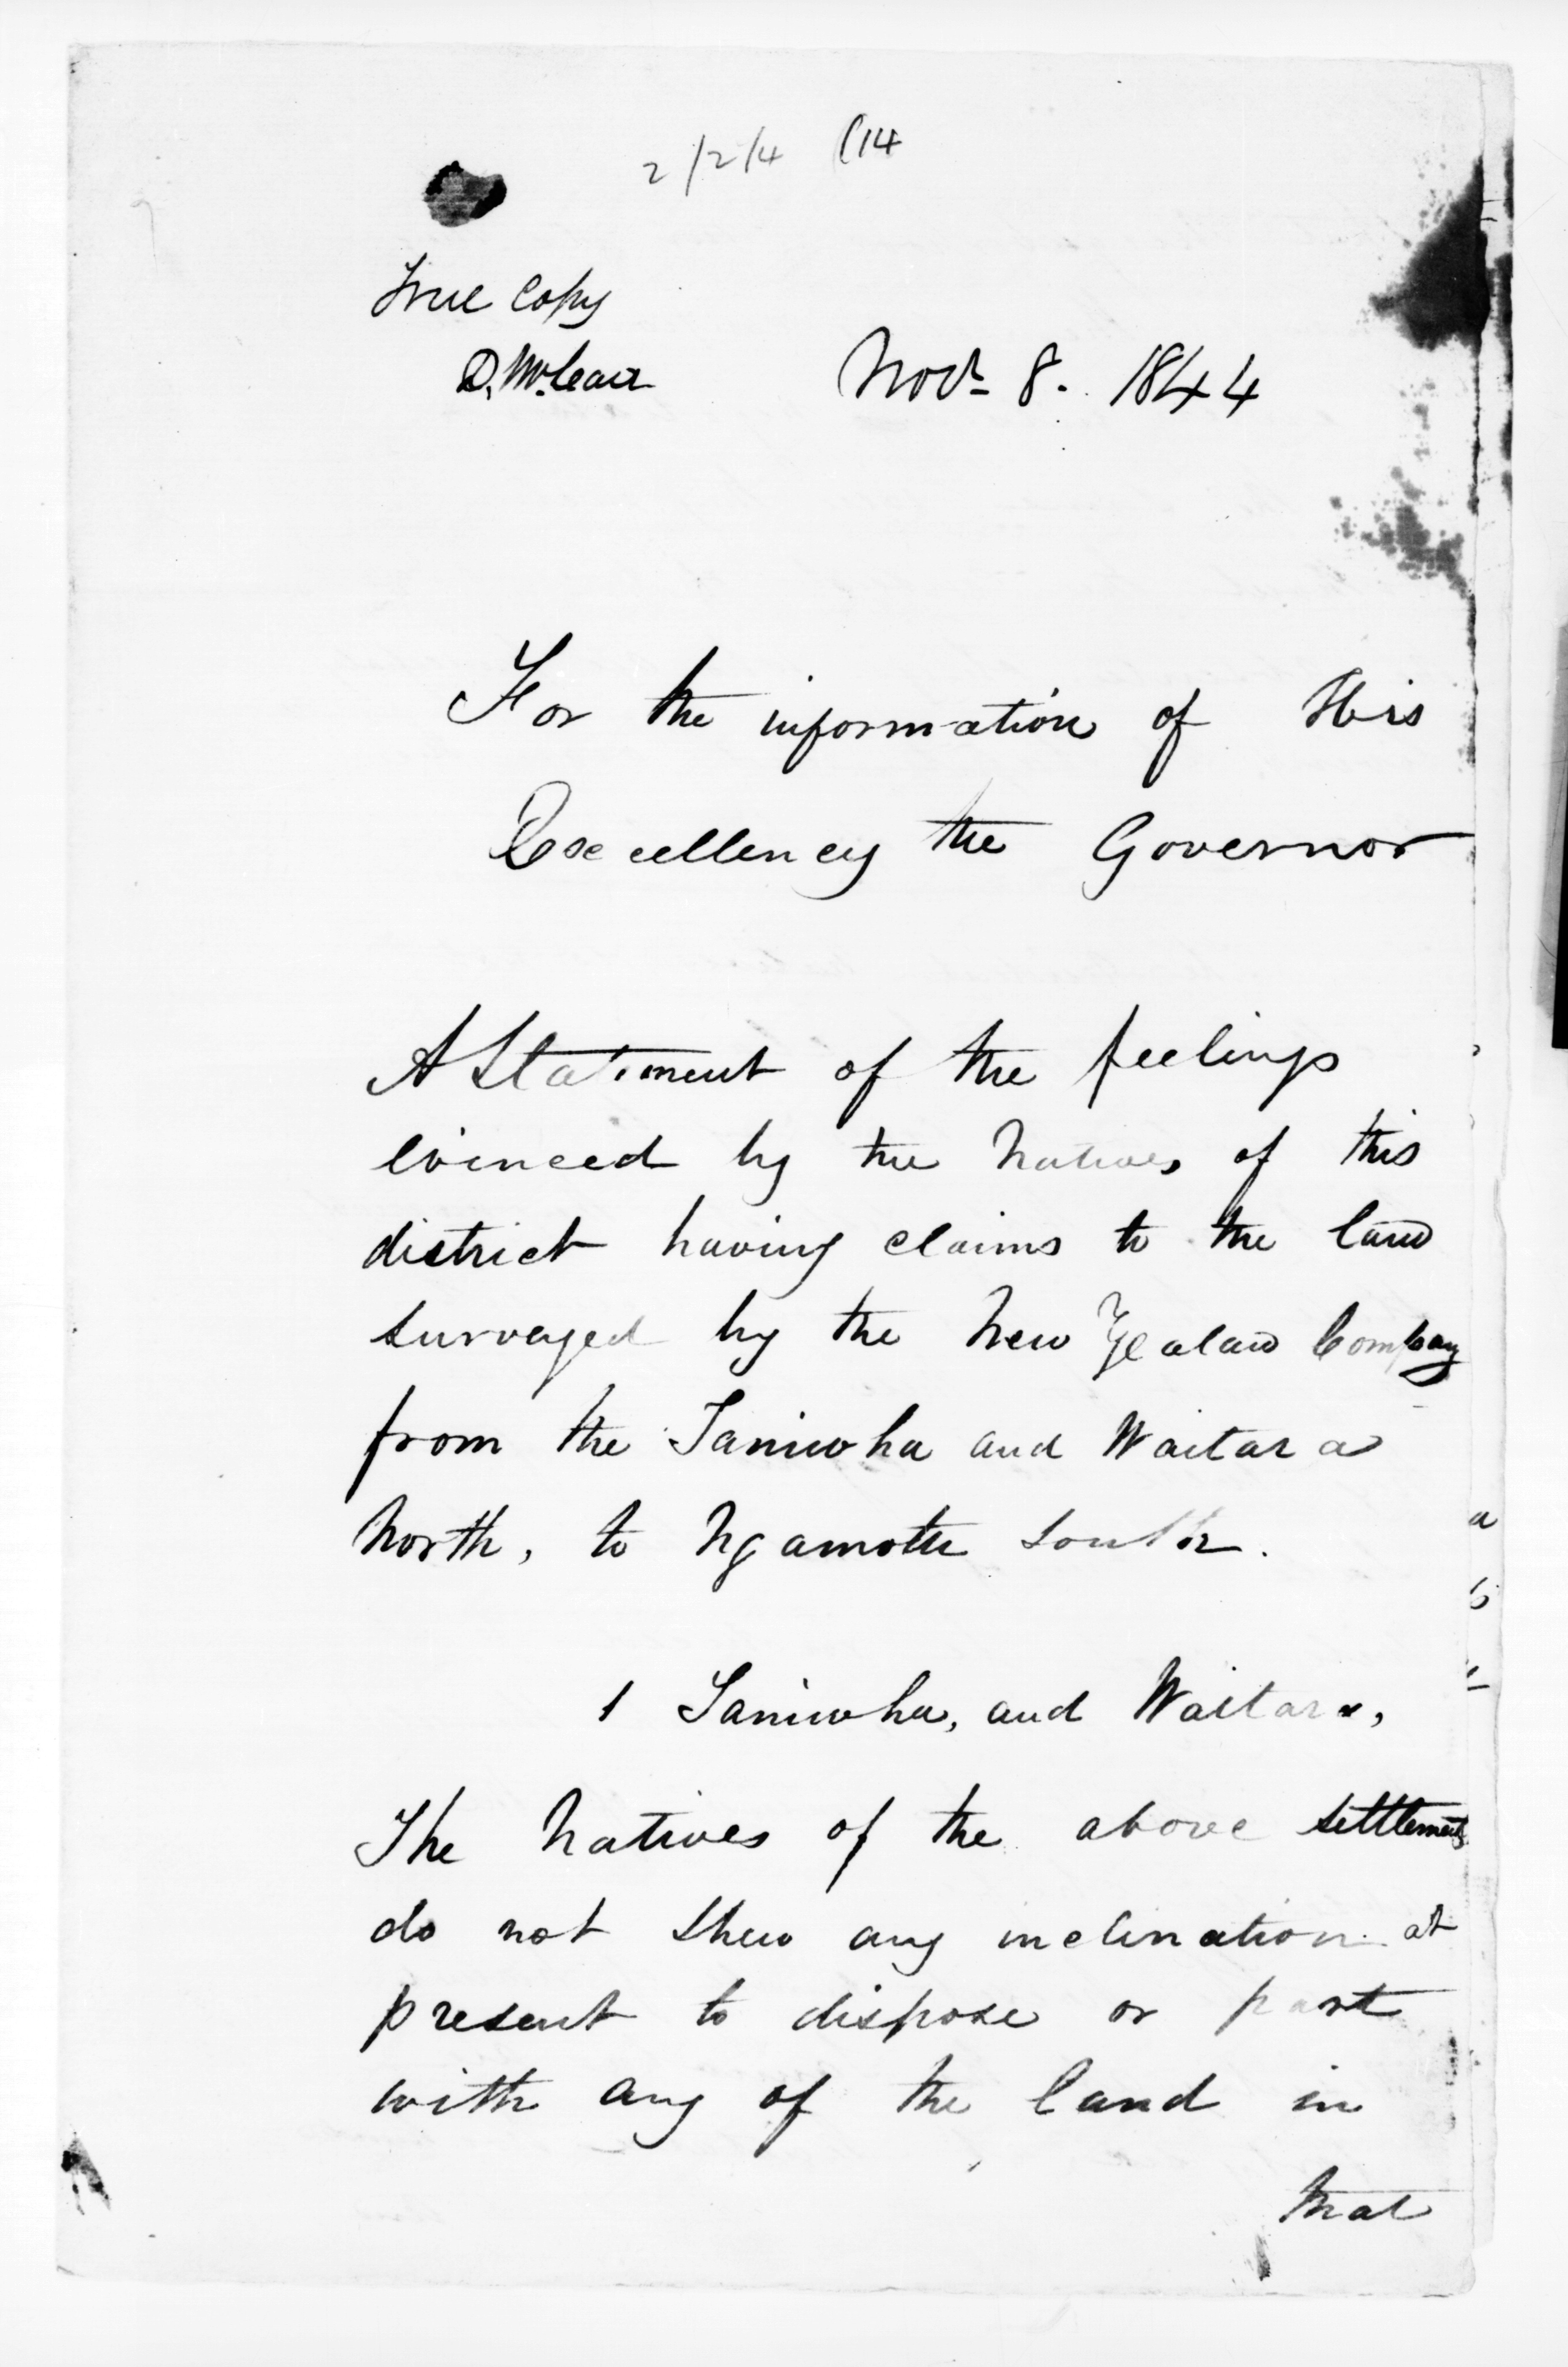 2/2/4 (14
True Copy
D. McLean
Novr 8. 1844
For the information of His
Excellency the Governor
A Statement of the feelings
evinced by the Natives of this
district having claims to the land
surveyed by the New Zealand Company
from the Taniwha and Waitara
North, to Ngamotu South.
1 Taniwha, and Waitara,
The Natives of the above settlements
do not shew any inclination at
present to dispose or part
with any of the land in
that